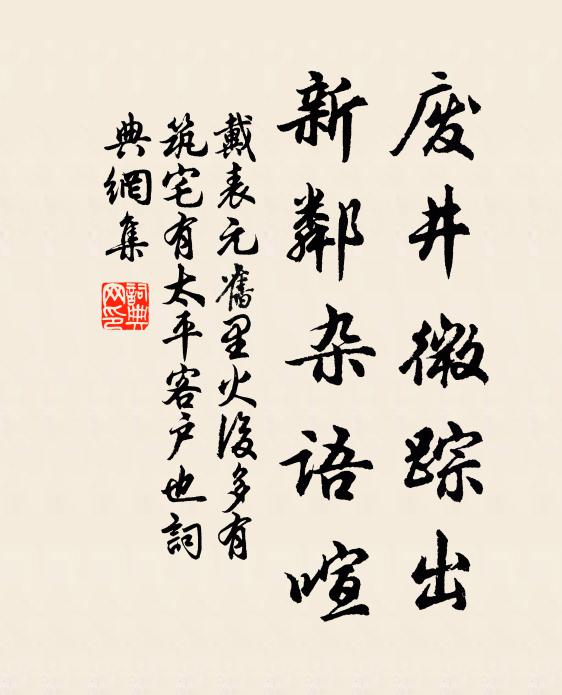 废井微踪出
新鄰杂语喧
戴表元舊里火後多有
筑宅有太平客户也詞
典網集
詞典网印